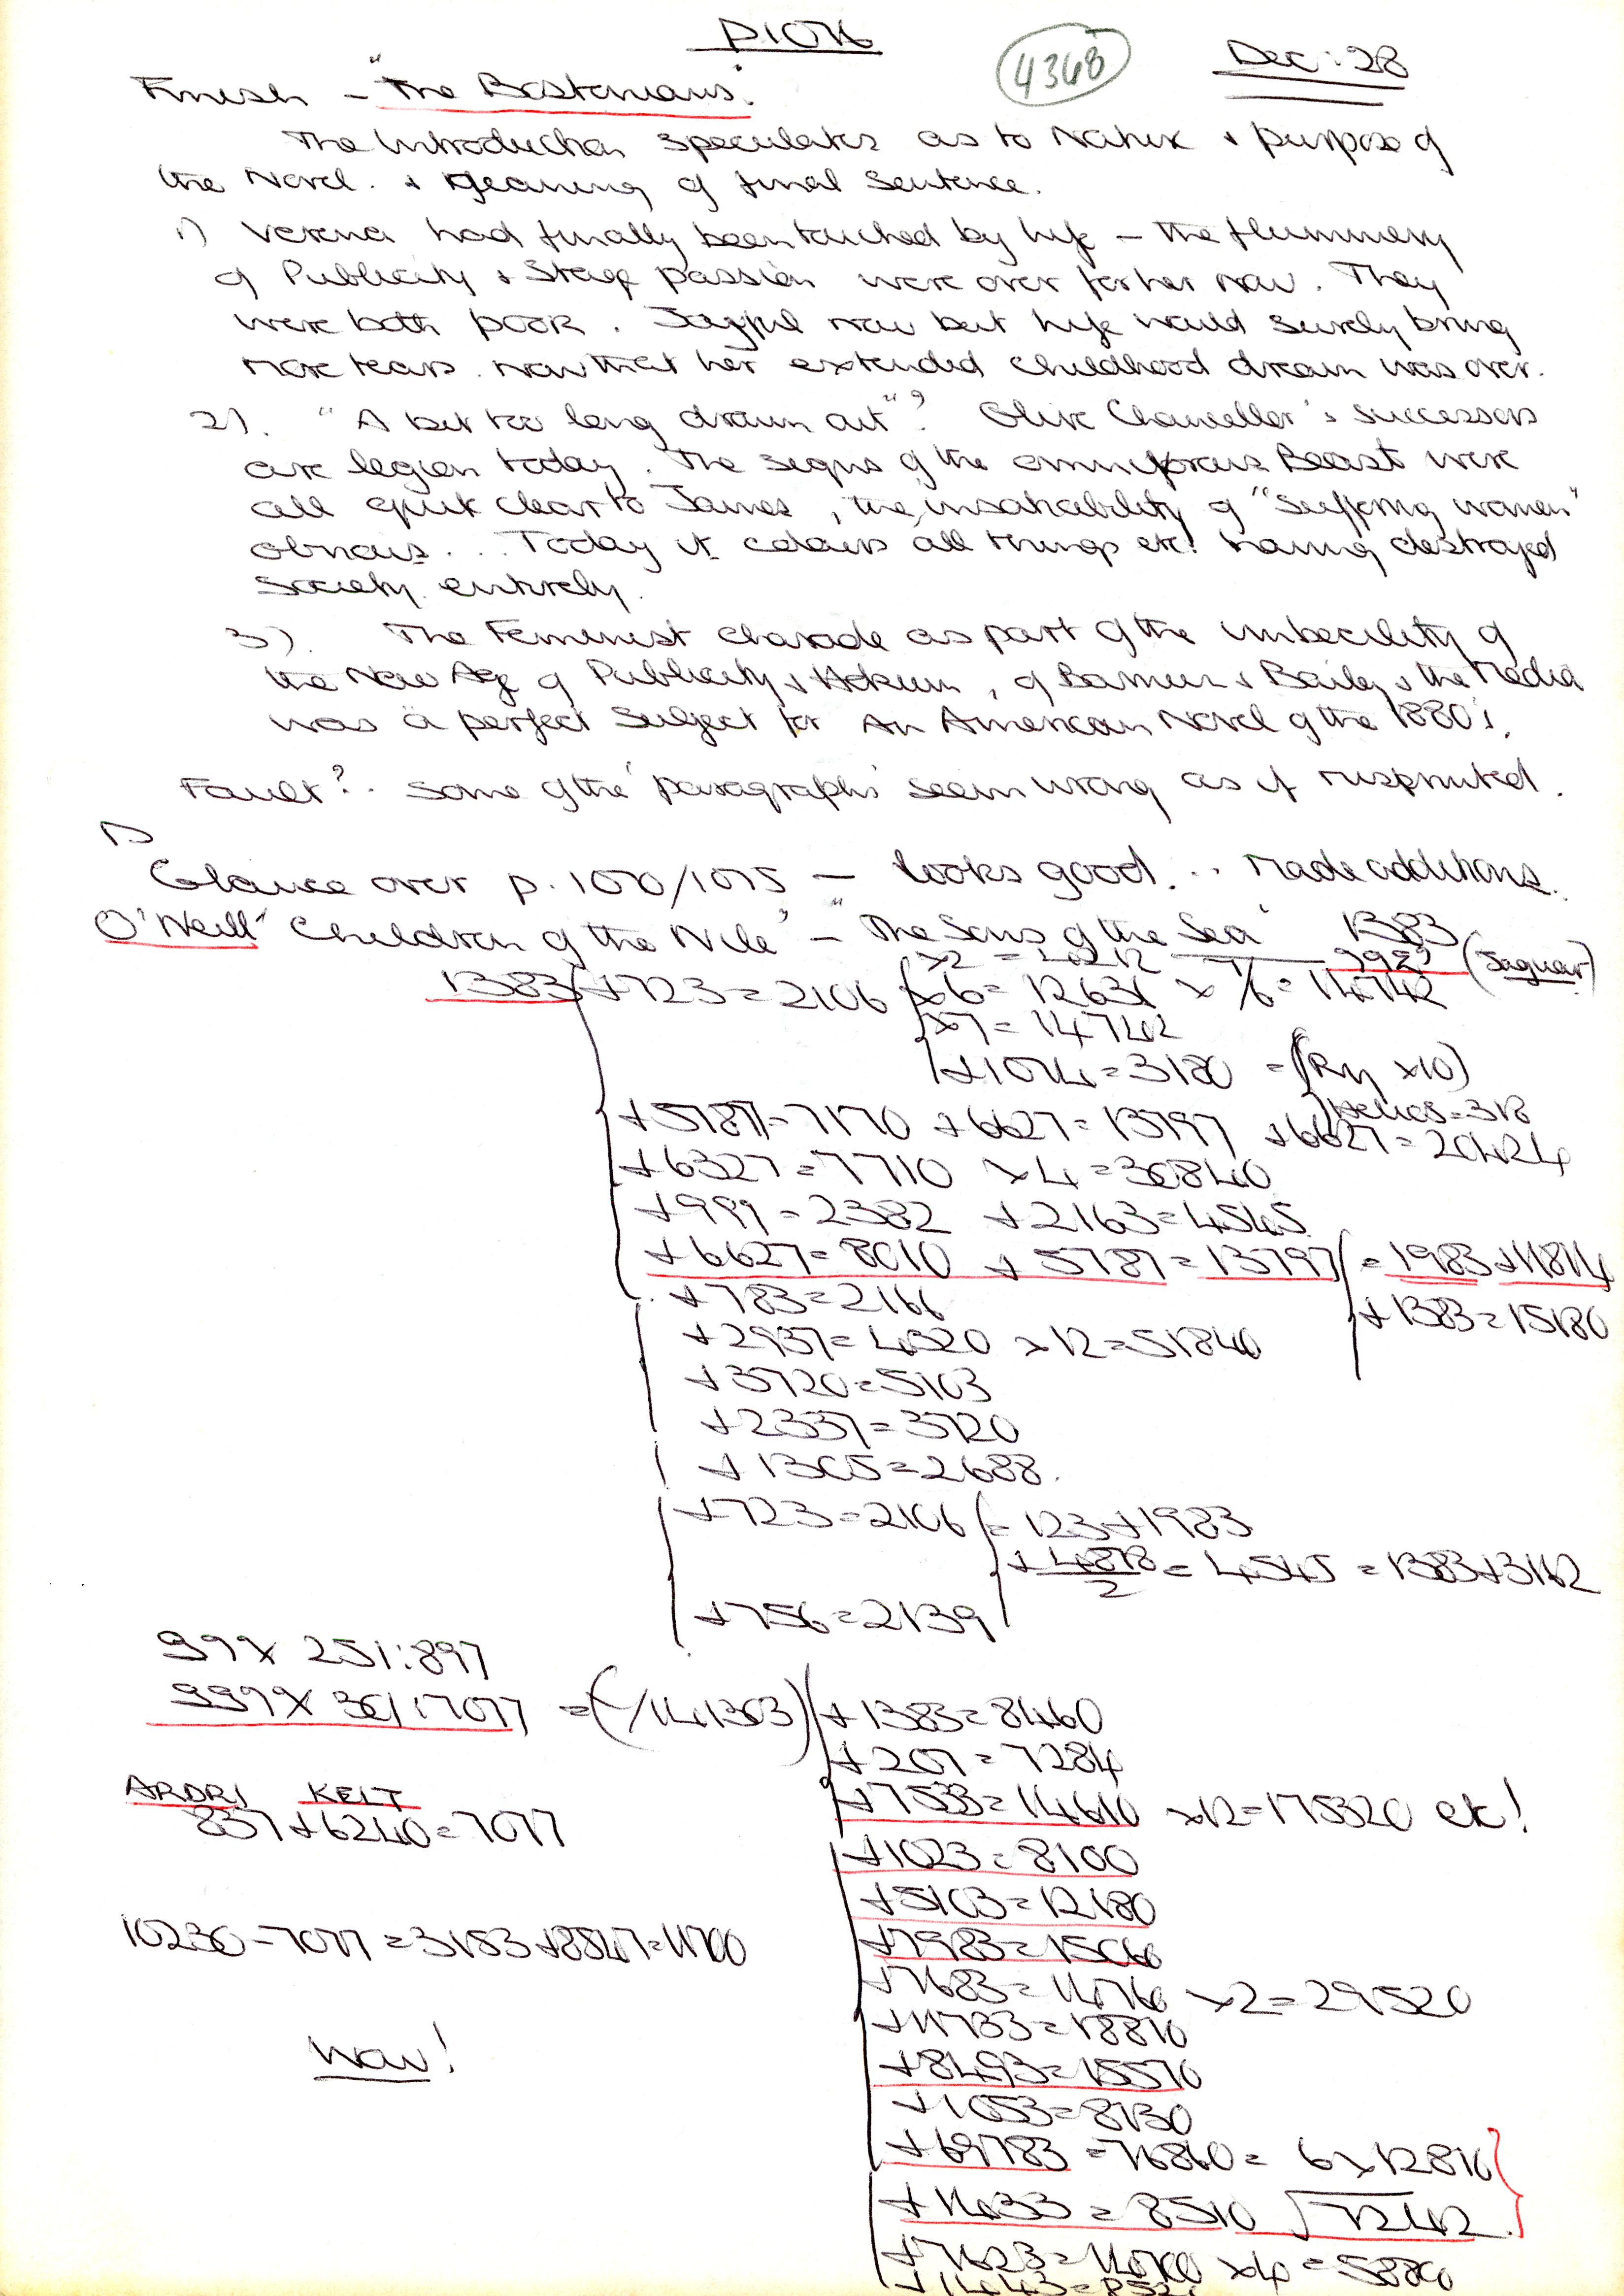 P1076
4368
Dec: 28
Finish - "The Bostonians".
The Introduction speculates as to Nature & purpose of
the Novel. & Meaning of final sentence.
1) Verena had finally been touched by life - the flummery
of Publicity & Stage passion were over for her now. They
were both poor. Joyful now but life would surely bring
more tears. now that her extended childhood dream was over.
2). "A bit too long drawn out"? Olive Chancellor's successors
are legion today. The signs of the omniforous Beast were
all quite clear to James, the insatiability of "suffering women"
obvious... Today it colours all things etc! having destroyed
Society entirely.
3). The Feminist charade as part of the imbecility of
the New Age of Publicity & , of Barnum & Bailey & the Media
was a perfect subject for An American Novel of the 1880's.
Fault?. Some of the 'paragraphs' seem wrong as if misprinted.
Glance over p. 1070/1075 - looks good... Made additions.
O'Neill "Children of the Nile" - "The Sons of the Sea" 1383
(Jaguar)
1383 +723=2106 x6=12636 x 7/6=14742
x7=14742
+1074=3180 = (Ry x10)
Helios=318
+5787=7170 +6627=13797 +6627=20424
+6327=7710 x4=30840
+999=2382 +2163=4545
+6627=8010 +5787=13797 =1983+11814
+783=2166 +1383=15180
+2937=4320 x12=51840
+3720=5103
+2337=3720
+1305=2688.
+723=2106 =123+1983
+4878/2=4545=1383+3162
+756=2139
99x 251:897
999x 30/:7077 =(√1141303) +1383=8460
+207=7284
ARDRI KELT
837+6240=7077
+7533=14610 x12=175320 etc!
+1023=8100
+5103=12180
10230-7077=3153+8547=11700
+7983=15060
+7683=14760 x2=29520
+11733=18810
Wow!
+8493=15570
+1053=8130
+69783=76860=6x12810
+1433=8510 √7242
+7623=14700 x4=58800